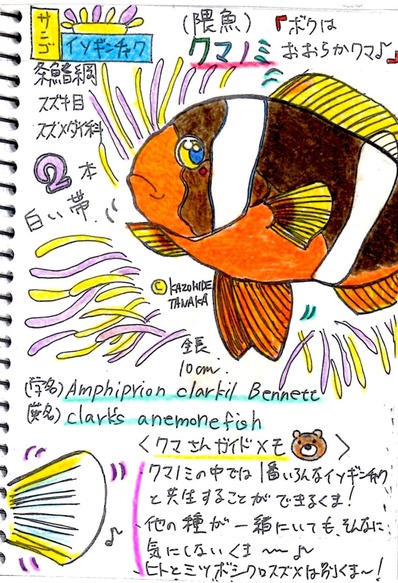 サンゴ
イソギンチャク
(隈魚)
クマノミ
『ボクは
おおらかクマ♪』
条鰭綱
スズキ目
スズメダイ科
2本
白い帯
© KAZUHIDE
TANAKA
全長
10cm.
(学名) Amphiprion clarkii Bennett
(英名) clark's anemonefish
<クマさんガイドメモ>
クマノミの中では1番いろんなイソギンチャク
と共生することができるくま!
他の種が一緒にいても、そんなに
気にしないくま〜〜♪
ヒトとミツボシクロスズメは別くま〜!